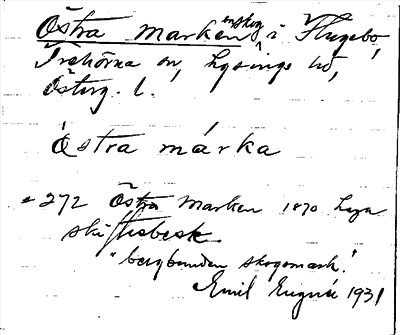 Östra marken ensk. sk. i Flugebo,
Trehörna sn, Lysings hd,
Österg. l.
Östra márka
272 Östra Marken 1870 Laga
skiftesbesk.
"bergbunden skogsmark."
Emil Eugnér 1931